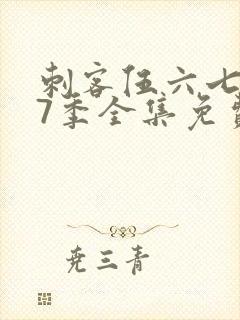 刺客伍六七
7季全集免费
尧三青